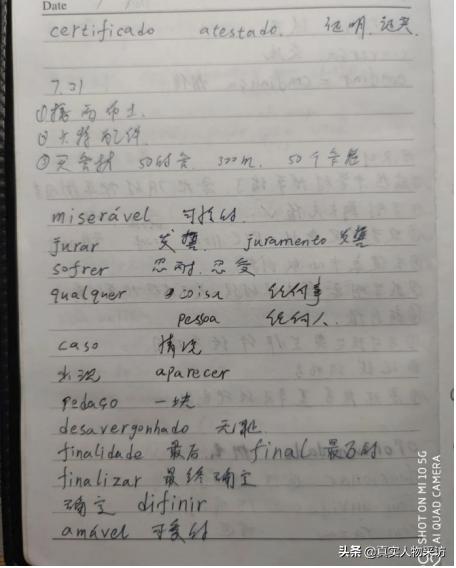 Date
certificado atestado. 证明.证实
7.21
① 擦雨布土.
② 大将配件
③ 300m. 50个
miserável 可怜的.
jurar 发誓 juramento 发誓
sofrer 忍耐.忍受
qualquer coisa 任何事
pessoa 任何人.
caso 情况
出现 aparecer
pedaço 一块
desavergonhado 无耻
finalidade 最后 final 最后的
finalizar 最终确定
确定 difinir
amável 可爱的
SHOT ON MI 10 5G
AI QUAD CAMERA
头条 @真实人物采访